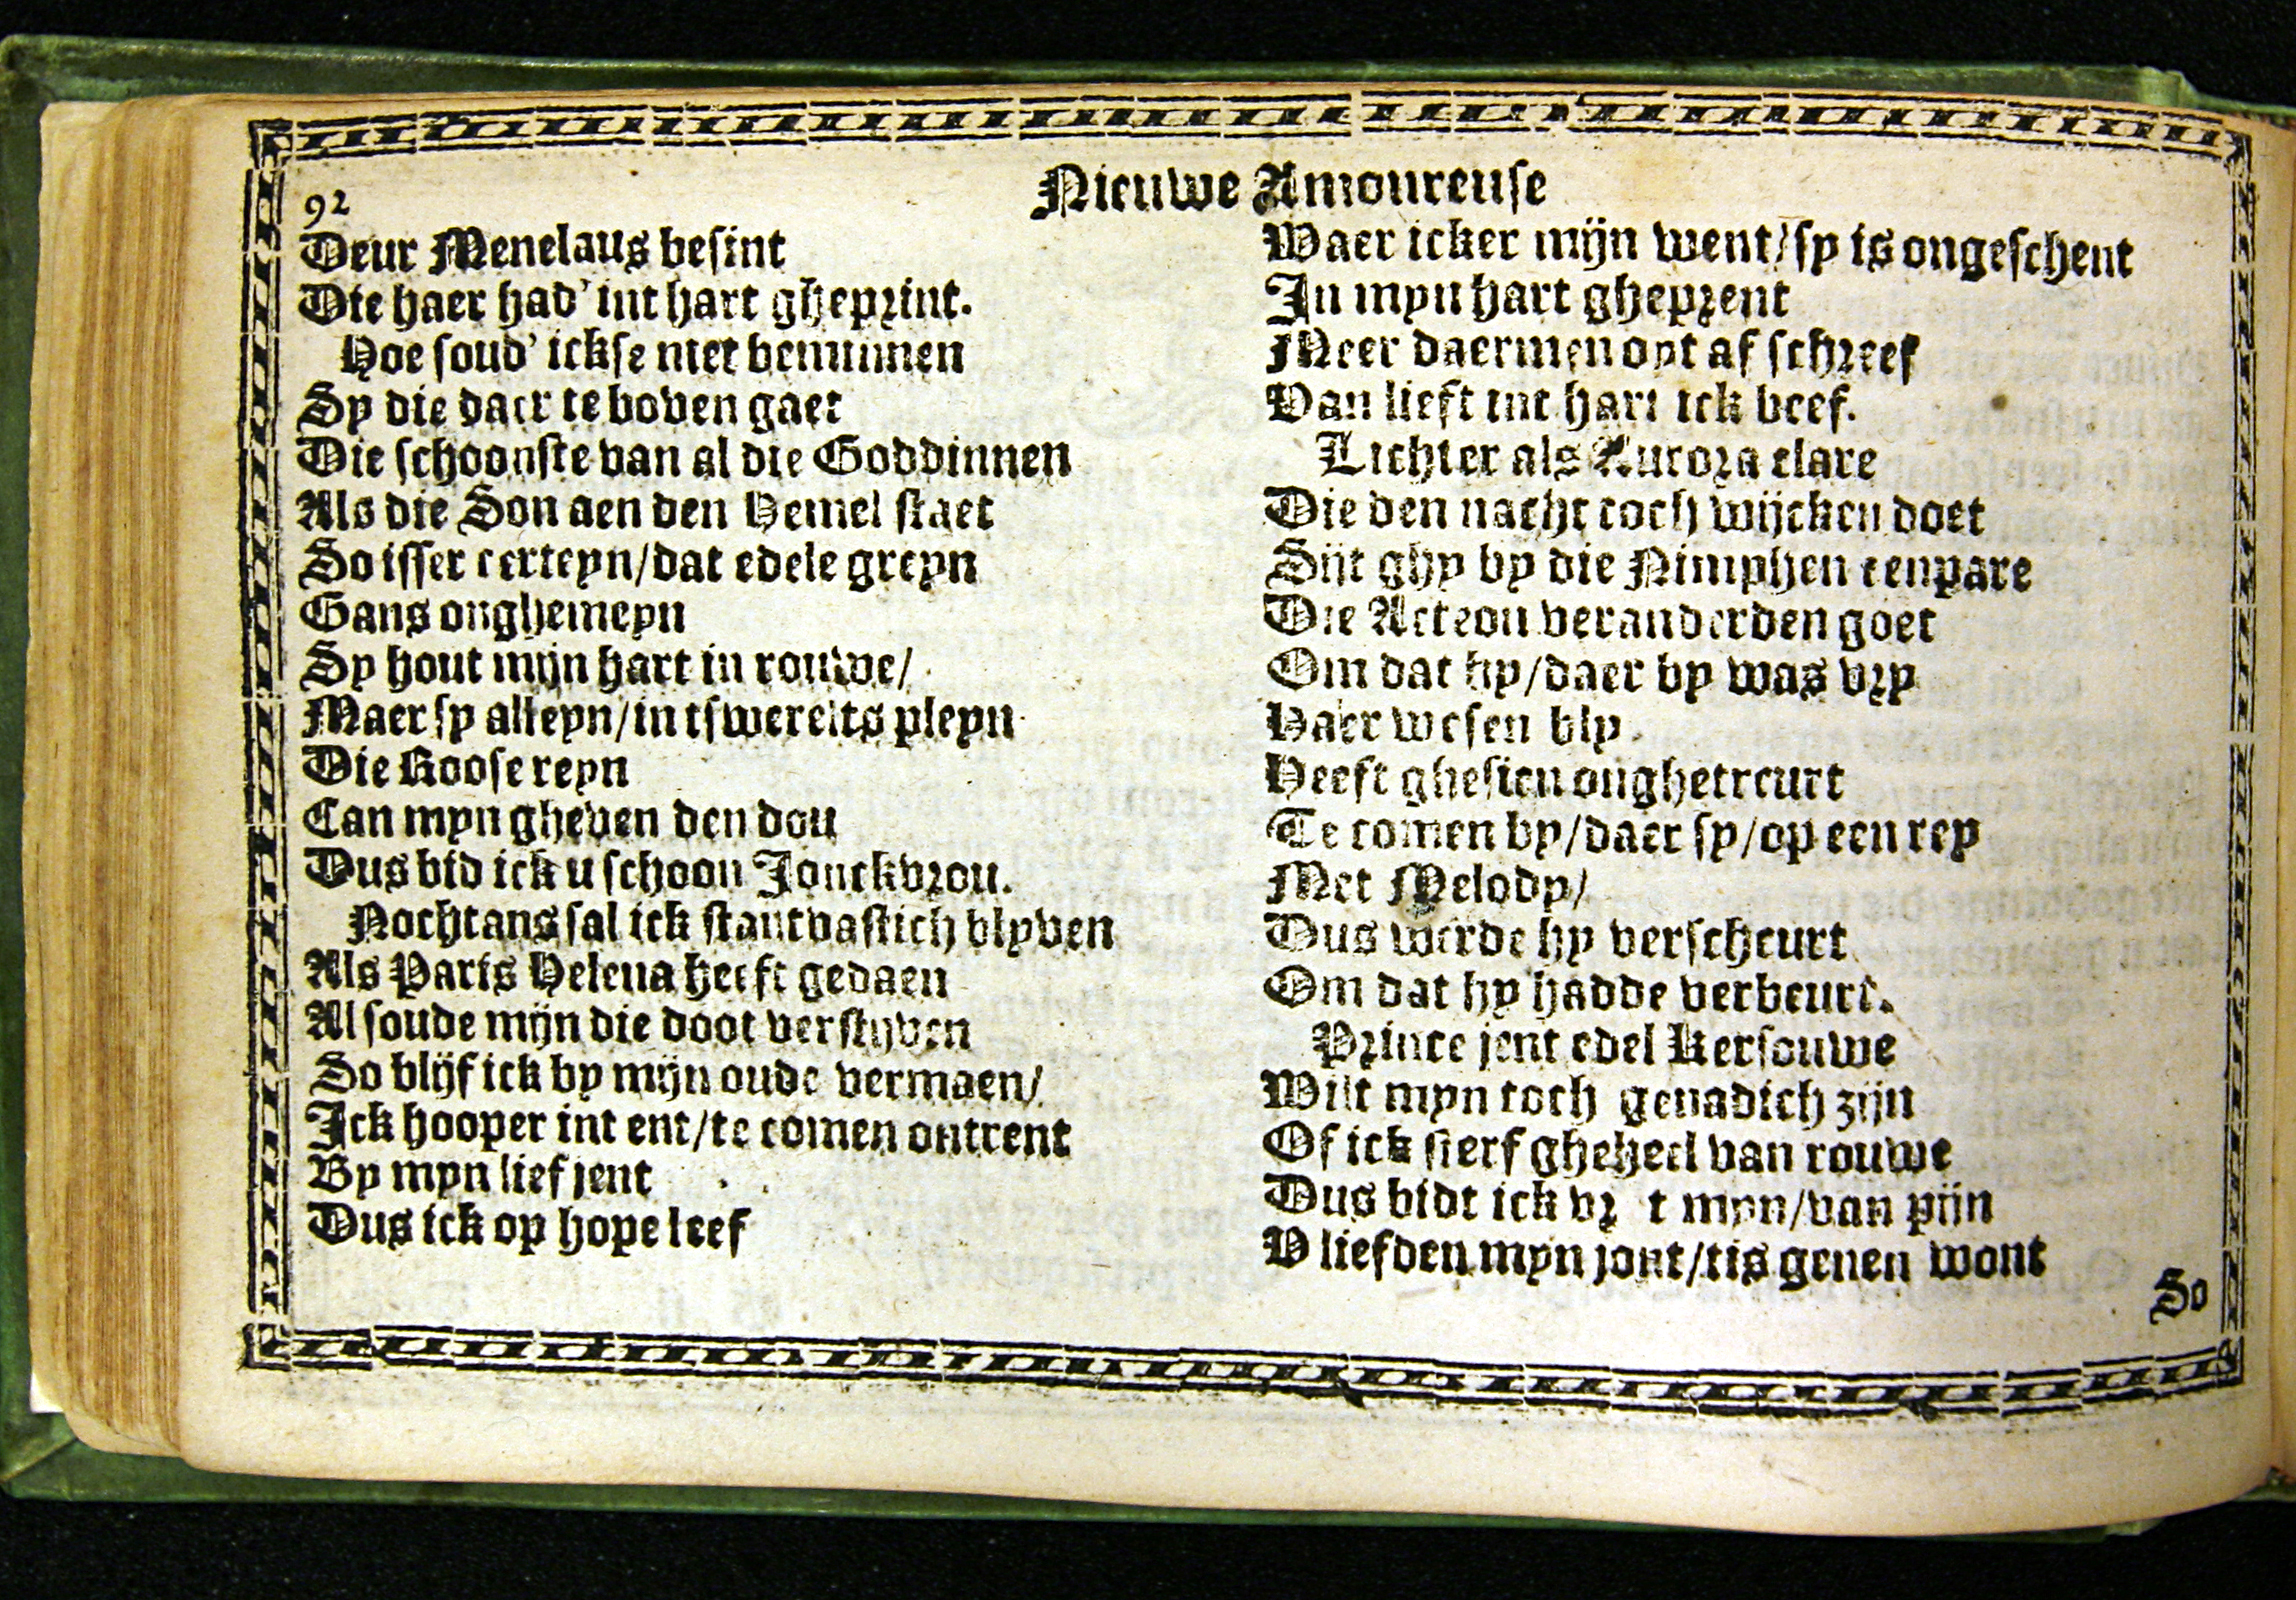 92
Nieuwe Amoureuse
Deur Menelaus besint
Die haer had' int hart gheprint.
Hoe soud' ickse niet beminnen
Sy die daer te boven gaet
Die schoonste van al die Goddinnen
Als die Son aen den Hemel staet
So isser certeyn/dat edele greyn
Gans onghemeyn
Sy hout mijn hart in rouwe/
Maer sy alleyn/in tswerelts pleyn
Die Roose reyn
Can myn gheven den dou
Dus bid ick u schoon Jonckvrou.
Nochtans sal ick stantvastich blyven
Als Paris Helena heeft gedaen
Al soude mijn die doot verstijven
So blijf ick by mijn oude vermaen/
Ick hooper int ent/te comen ontrent
By myn lief jent
Dus ick op hope leef
Waer icker mijn went/sy is ongeschent
In myn hart gheprent
Meer daermen oyt af schreef
Van lieft int hart ick beef.
Lichter als Aurora clare
Die den nacht toch wijcken doet
Sijt ghy by die Nimphen eenpare
Die Acteon veranderden goet
Om dat hy/daer by was vry
Haer wesen bly
Heeft ghesien onghetreurt
Te comen by/daer sy/op een rey
Met Melody/
Dus werde hy verscheurt
Om dat hy hadde verbeurt.
Prince jent edel Kersouwe
Wilt myn toch genadich zijn
Of ick sterf gheheel van rouwe
Dus bidt ick vr t myn/van pijn
V liefden myn jont/tis genen wont
So